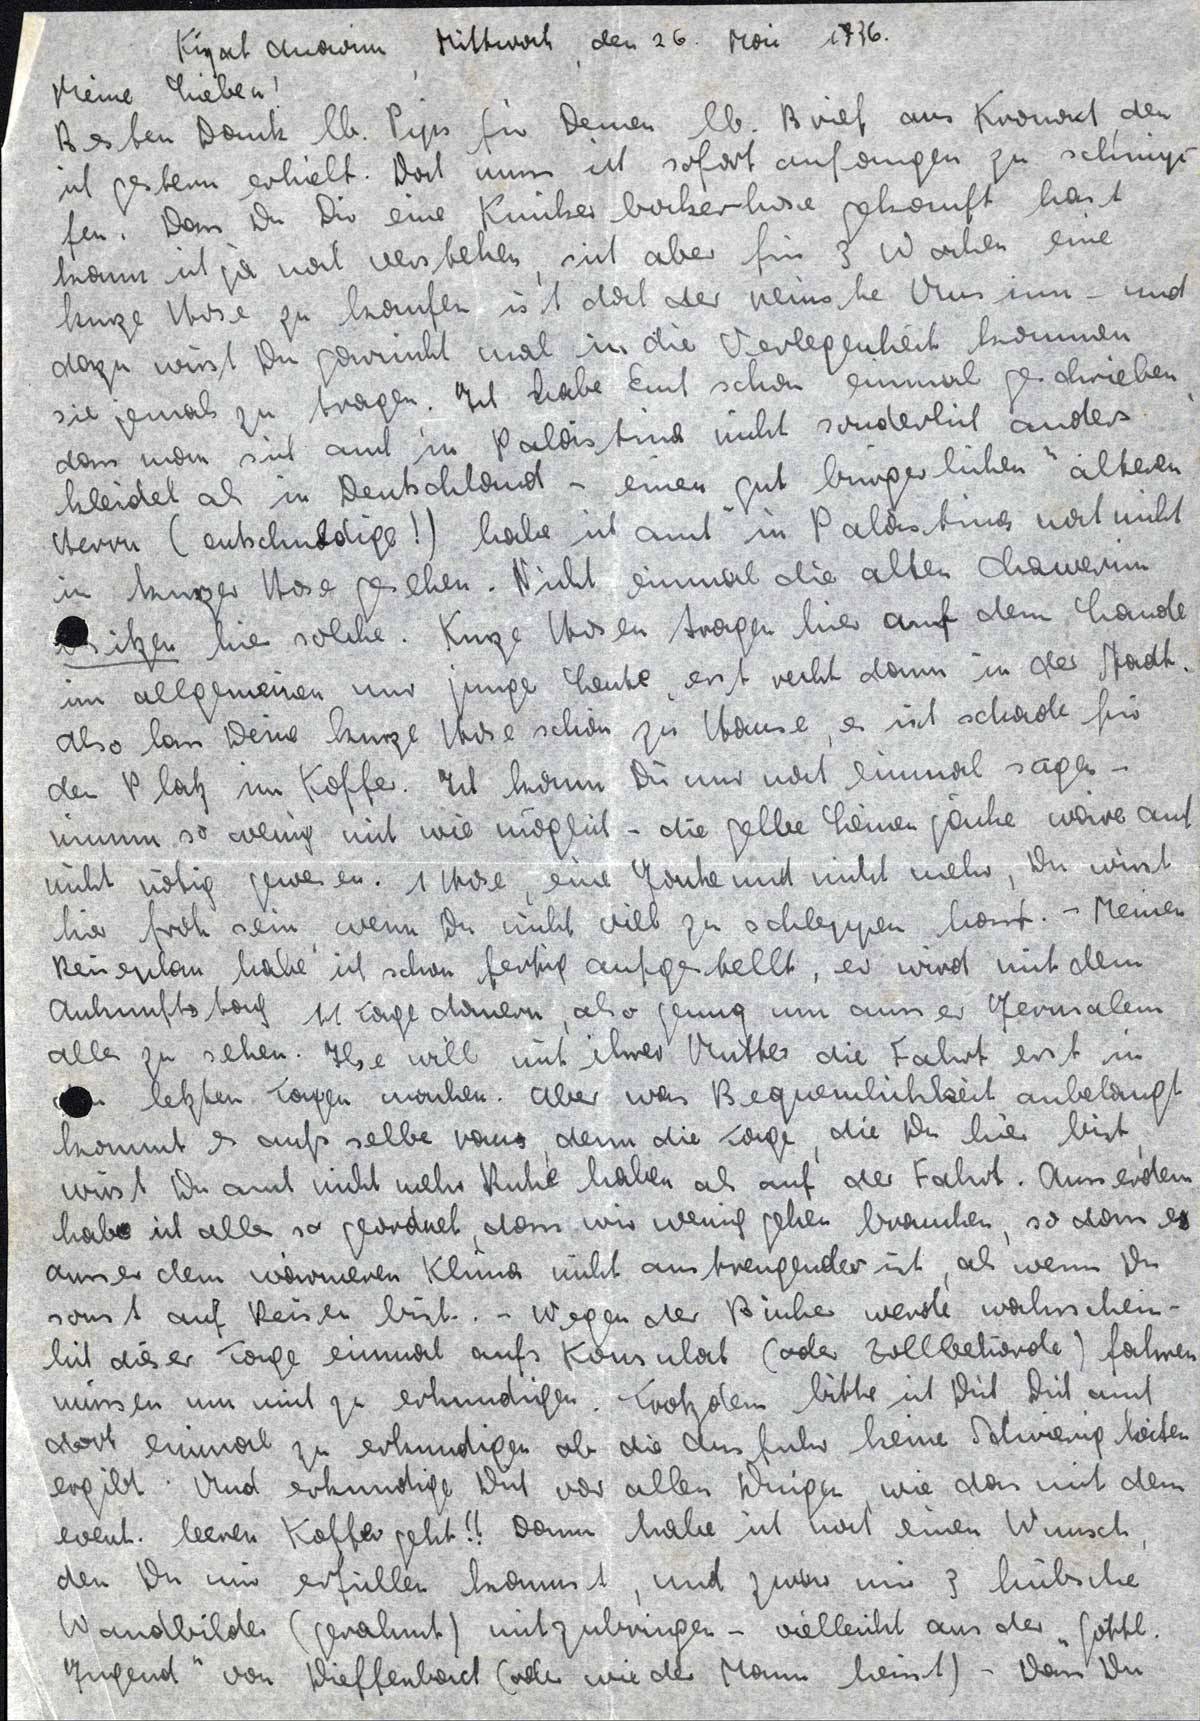 Kirjat Anavim, Mittwoch, den 26. Mai 1936.
Meine Lieben!
Besten Dank lb. Pips für Deinen lb. Brief aus Kranart, den
ich gestern erhielt. Doch muss ich sofort anfangen zu schimp-
fen. Dass Du Dir eine Knickerbockerhose gekauft hast
kann ich ja noch verstehen, sich aber für 3 Wochen eine
kurze Hose zu kaufen ist doch der reinste Unsinn - und
dazu wirst Du garnicht mal in die Verlegenheit kommen
sie jemals zu tragen. Ich habe Euch schon einmal geschrieben,
dass man sich auch in Palästina nicht sonderlich anders
kleidet als in Deutschland - einen "gut bürgerlichen" älteren
Herrn (entschuldige!) habe ich auch in Palästina noch nicht
in kurzer Hose gesehen. Nicht einmal die alten Chawerim
besitzen hier solche. Kurze Hosen tragen hier auf dem Lande
im allgemeinen nur junge Leute, erst recht dann in der Stadt.
Also lass Deine kurze Hose schön zu Hause, es ist schade für
den Platz im Koffer. Ich kann Dir nur noch einmal sagen -
nimm so wenig mit wie möglich - die gelbe Leinenjacke wäre auch
nicht nötig gewesen. 1 Hose, eine Jacke und nicht mehr, Du wirst
hier froh sein, wenn Du nicht viel zu schleppen hast. - Meinen
Reiseplan habe ich schon fertig aufgestellt, er wird mit dem
Ankunftstag 11 Tage dauern, also genug um ausser Jerusalem
alles zu sehen. Ilse will mit ihrer Mutter die Fahrt erst in
den letzten Tagen machen. Aber was Bequemlichkeit anbelangt
kommt es aufs selbe raus, denn die Tage, die Du hier bist,
wirst Du auch nicht mehr Ruhe haben als auf der Fahrt. Ausserdem
habe ich alles so geordnet, dass wir wenig gehen brauchen, so dass es
ausser dem wärmeren Klima nicht anstrengender ist, als wenn Du
sonst auf Reisen bist. - Wegen der Bücher werde wahrschein-
lich dieser Tage einmal aufs Konsulat (oder Zollbehörde) fahren
müssen um mich zu erkundigen. Trotzdem bitte ich Dich, Dich auch
dort einmal zu erkundigen ob die Ausfuhr keine Schwierigkeiten
ergibt. Und erkundige Dich vor allen Dingen, wie das mit dem
event. leeren Koffer geht!! Dann habe ich noch einen Wunsch,
den Du mir erfüllen kannst, und zwar mir 3 hübsche
Wandbilder (gerahmt) mitzubringen - vielleicht aus der "göttl.
Jugend" von Dieffenbach (oder wie der Mann heisst) - Dass Du